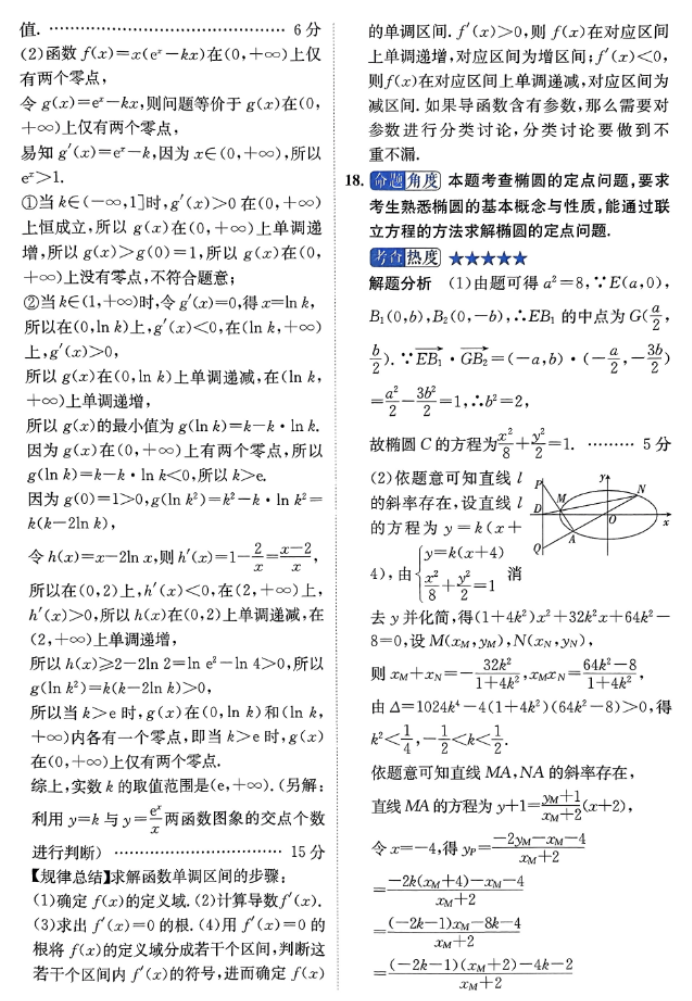 值. …………………………………… 6分
(2)函数 f(x)=x(eˣ-kx)在(0,+∞)上仅
有两个零点,
令 g(x)=eˣ-kx,则问题等价于 g(x)在(0,
+∞)上仅有两个零点,
易知 g′(x)=eˣ-k,因为 x∈(0,+∞),所以
eˣ>1.
①当 k∈(-∞,1]时,g′(x)>0 在(0,+∞)
上恒成立,所以 g(x)在(0,+∞)上单调递
增,所以 g(x)>g(0)=1,所以 g(x)在(0,
+∞)上没有零点,不符合题意;
②当 k∈(1,+∞)时,令 g′(x)=0,得 x=ln k,
所以在(0,ln k)上,g′(x)<0,在(ln k,+∞)
上,g′(x)>0,
所以 g(x)在(0,ln k)上单调递减,在(ln k,
+∞)上单调递增,
所以 g(x)的最小值为 g(ln k)=k-k·ln k.
因为 g(x)在(0,+∞)上有两个零点,所以
g(ln k)=k-k·ln k<0,所以 k>e.
因为 g(0)=1>0,g(ln k²)=k²-k·ln k²=
k(k-2ln k),
令 h(x)=x-2ln x,则 h′(x)=1-2/x=(x-2)/x,
所以在(0,2)上,h′(x)<0,在(2,+∞)上,
h′(x)>0,所以 h(x)在(0,2)上单调递减,在
(2,+∞)上单调递增,
所以 h(x)≥2-2ln 2=ln e²-ln 4>0,所以
g(ln k²)=k(k-2ln k)>0,
所以当 k>e 时,g(x)在(0,ln k)和(ln k,
+∞)内各有一个零点,即当 k>e 时,g(x)
在(0,+∞)上仅有两个零点.
综上,实数 k 的取值范围是(e,+∞).(另解:
利用 y=k 与 y=eˣ/x 两函数图象的交点个数
进行判断) …………………………… 15分
【规律总结】求解函数单调区间的步骤:
(1)确定 f(x)的定义域.(2)计算导数 f′(x).
(3)求出 f′(x)=0 的根.(4)用 f′(x)=0 的
根将 f(x)的定义域分成若干个区间,判断这
若干个区间内 f′(x)的符号,进而确定 f(x)
的单调区间. f′(x)>0,则 f(x)在对应区间
上单调递增,对应区间为增区间;f′(x)<0,
则f(x)在对应区间上单调递减,对应区间为
减区间. 如果导函数含有参数,那么需要对
参数进行分类讨论,分类讨论要做到不
重不漏.
18. 命题角度 本题考查椭圆的定点问题,要求
考生熟悉椭圆的基本概念与性质,能通过联
立方程的方法求解椭圆的定点问题.
考查热度 ★★★★★
解题分析 (1)由题可得 a²=8,∵E(a,0),
B₁(0,b),B₂(0,-b),∴EB₁ 的中点为 G(a/2,
b/2). ∵→EB₁·→GB₂=(-a,b)·(-a/2,-3b/2)
=a²/2-3b²/2=1,∴b²=2,
故椭圆 C 的方程为x²/8+y²/2=1. ……… 5分
(2)依题意可知直线 l
的斜率存在,设直线 l
的方程为 y=k(x+
4),由{y=k(x+4) x²/8+y²/2=1 消
P
M
D
A
Q
y
N
O
x
去 y 并化简,得(1+4k²)x²+32k²x+64k²-
8=0,设 M(x_M,y_M),N(x_N,y_N),
则 x_M+x_N=-32k²/(1+4k²),x_Mx_N=(64k²-8)/(1+4k²),
由 Δ=1024k⁴-4(1+4k²)(64k²-8)>0,得
k²<1/4,-1/2<k<1/2.
依题意可知直线 MA,NA 的斜率存在,
直线 MA 的方程为 y+1=(y_M+1)/(x_M+2)(x+2),
令 x=-4,得 y_P=(-2y_M-x_M-4)/(x_M+2)
=(-2k(x_M+4)-x_M-4)/(x_M+2)
=((-2k-1)x_M-8k-4)/(x_M+2)
=((-2k-1)(x_M+2)-4k-2)/(x_M+2)